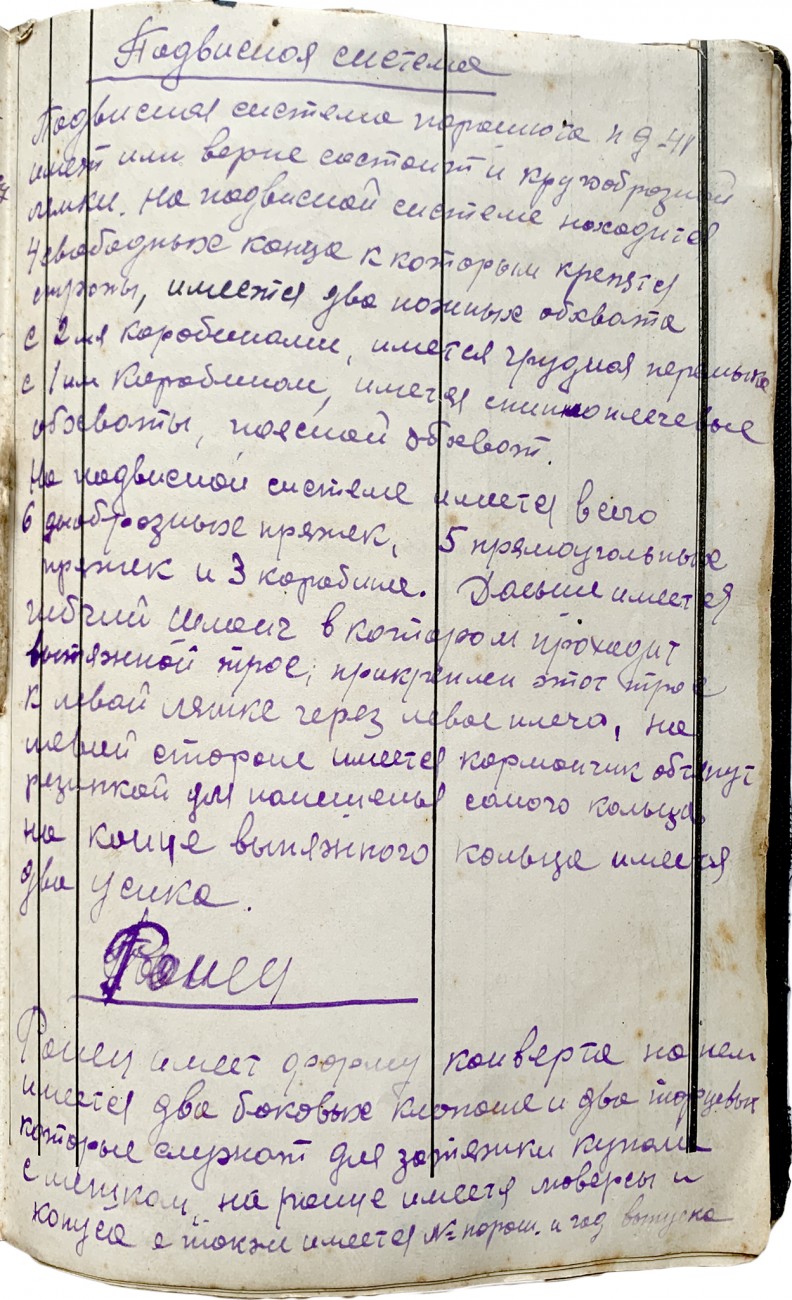 Подвисная система
Подвисная система парашюта ПД-41
имеет или верне состоит и кругообразной
лямки. На подвисной системе находится
4 свободных конца к которым крепятся
стропы, имеется два ножных обхвата
с 2мя коробинами, имется грудная перемычка
с 1им Карабином, имется спинноплечевые
обхваты, поясной обхват.
На подвисной системе имеется всего
6 дообразных пряжек, 5 прямоугольных
пряжек и 3 корабина. Дальше имеется
гибчий шланг в котором проходит
вытяжной трос, прикреплен этот трос
к левой лямке через левое плечо, на
левой стороне имеется кормончик обтянут
резинкой для помещенья самого кольца
на конце вытяжного кольца имеется
два усика.
Ранец
Ранец имеет форму конверта на нем
имеется два боковых клапана и два торцевых
которые служат для затяжки купола
с мешком, на ранце имеется люверсы и
конуса а также имеется № параш. и год выпуска